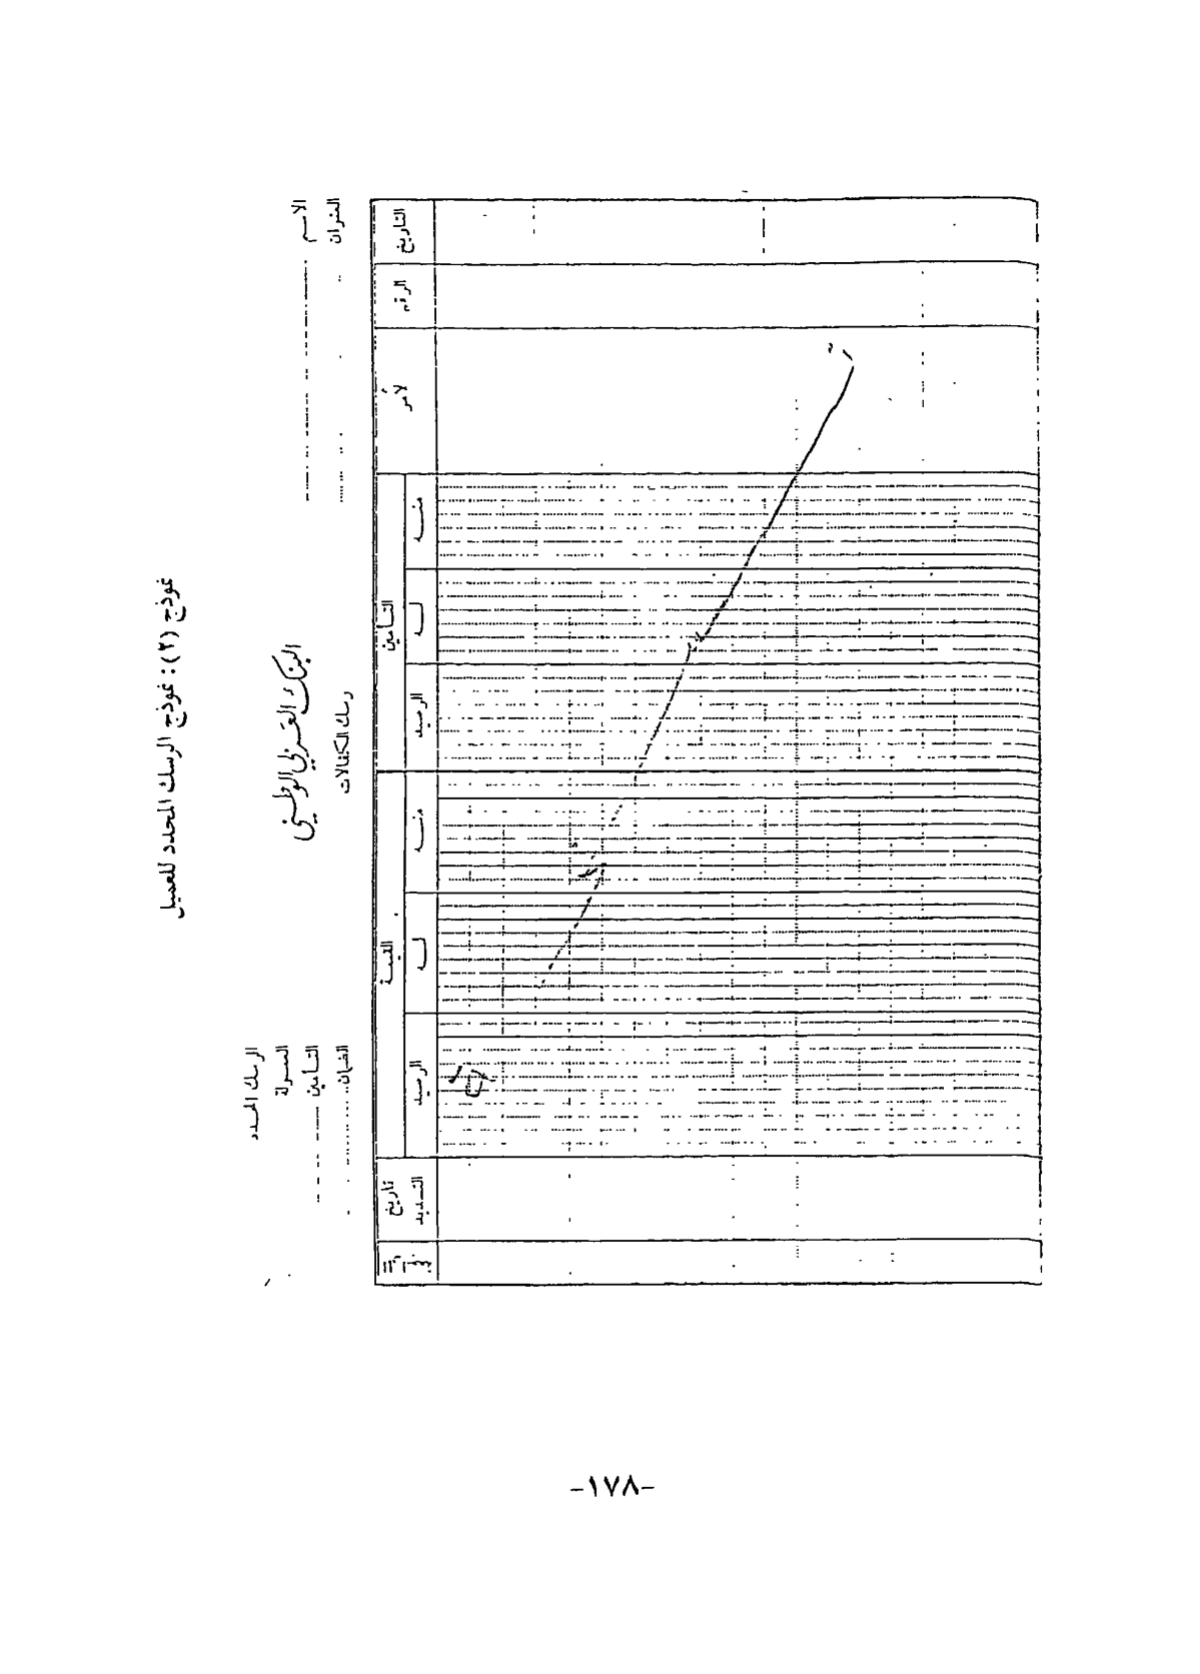 نموذج (٢): نموذج الرسك المحدد للعميل
البنك العربي الوطني
رسك الكفالات
الاسم
العنوان
الرسك المحدد
العمولة
التأمين
الضمان
التاريخ
الرقم
لأمر
التأمين
القيمة
منه
له
الرصيد
منه
له
الرصيد
تاريخ
التسديد
-١٧٨-